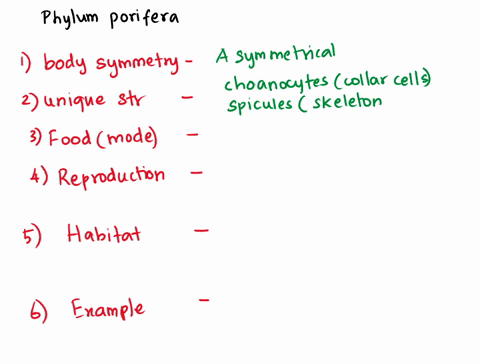 Phylum porifera
1) body symmetry - A symmetrical
choanocytes (collar cells)
2) unique str - spicules ( skeleton
3) Food (mode) -
4) Reproduction -
5) Habitat -
6) Example -